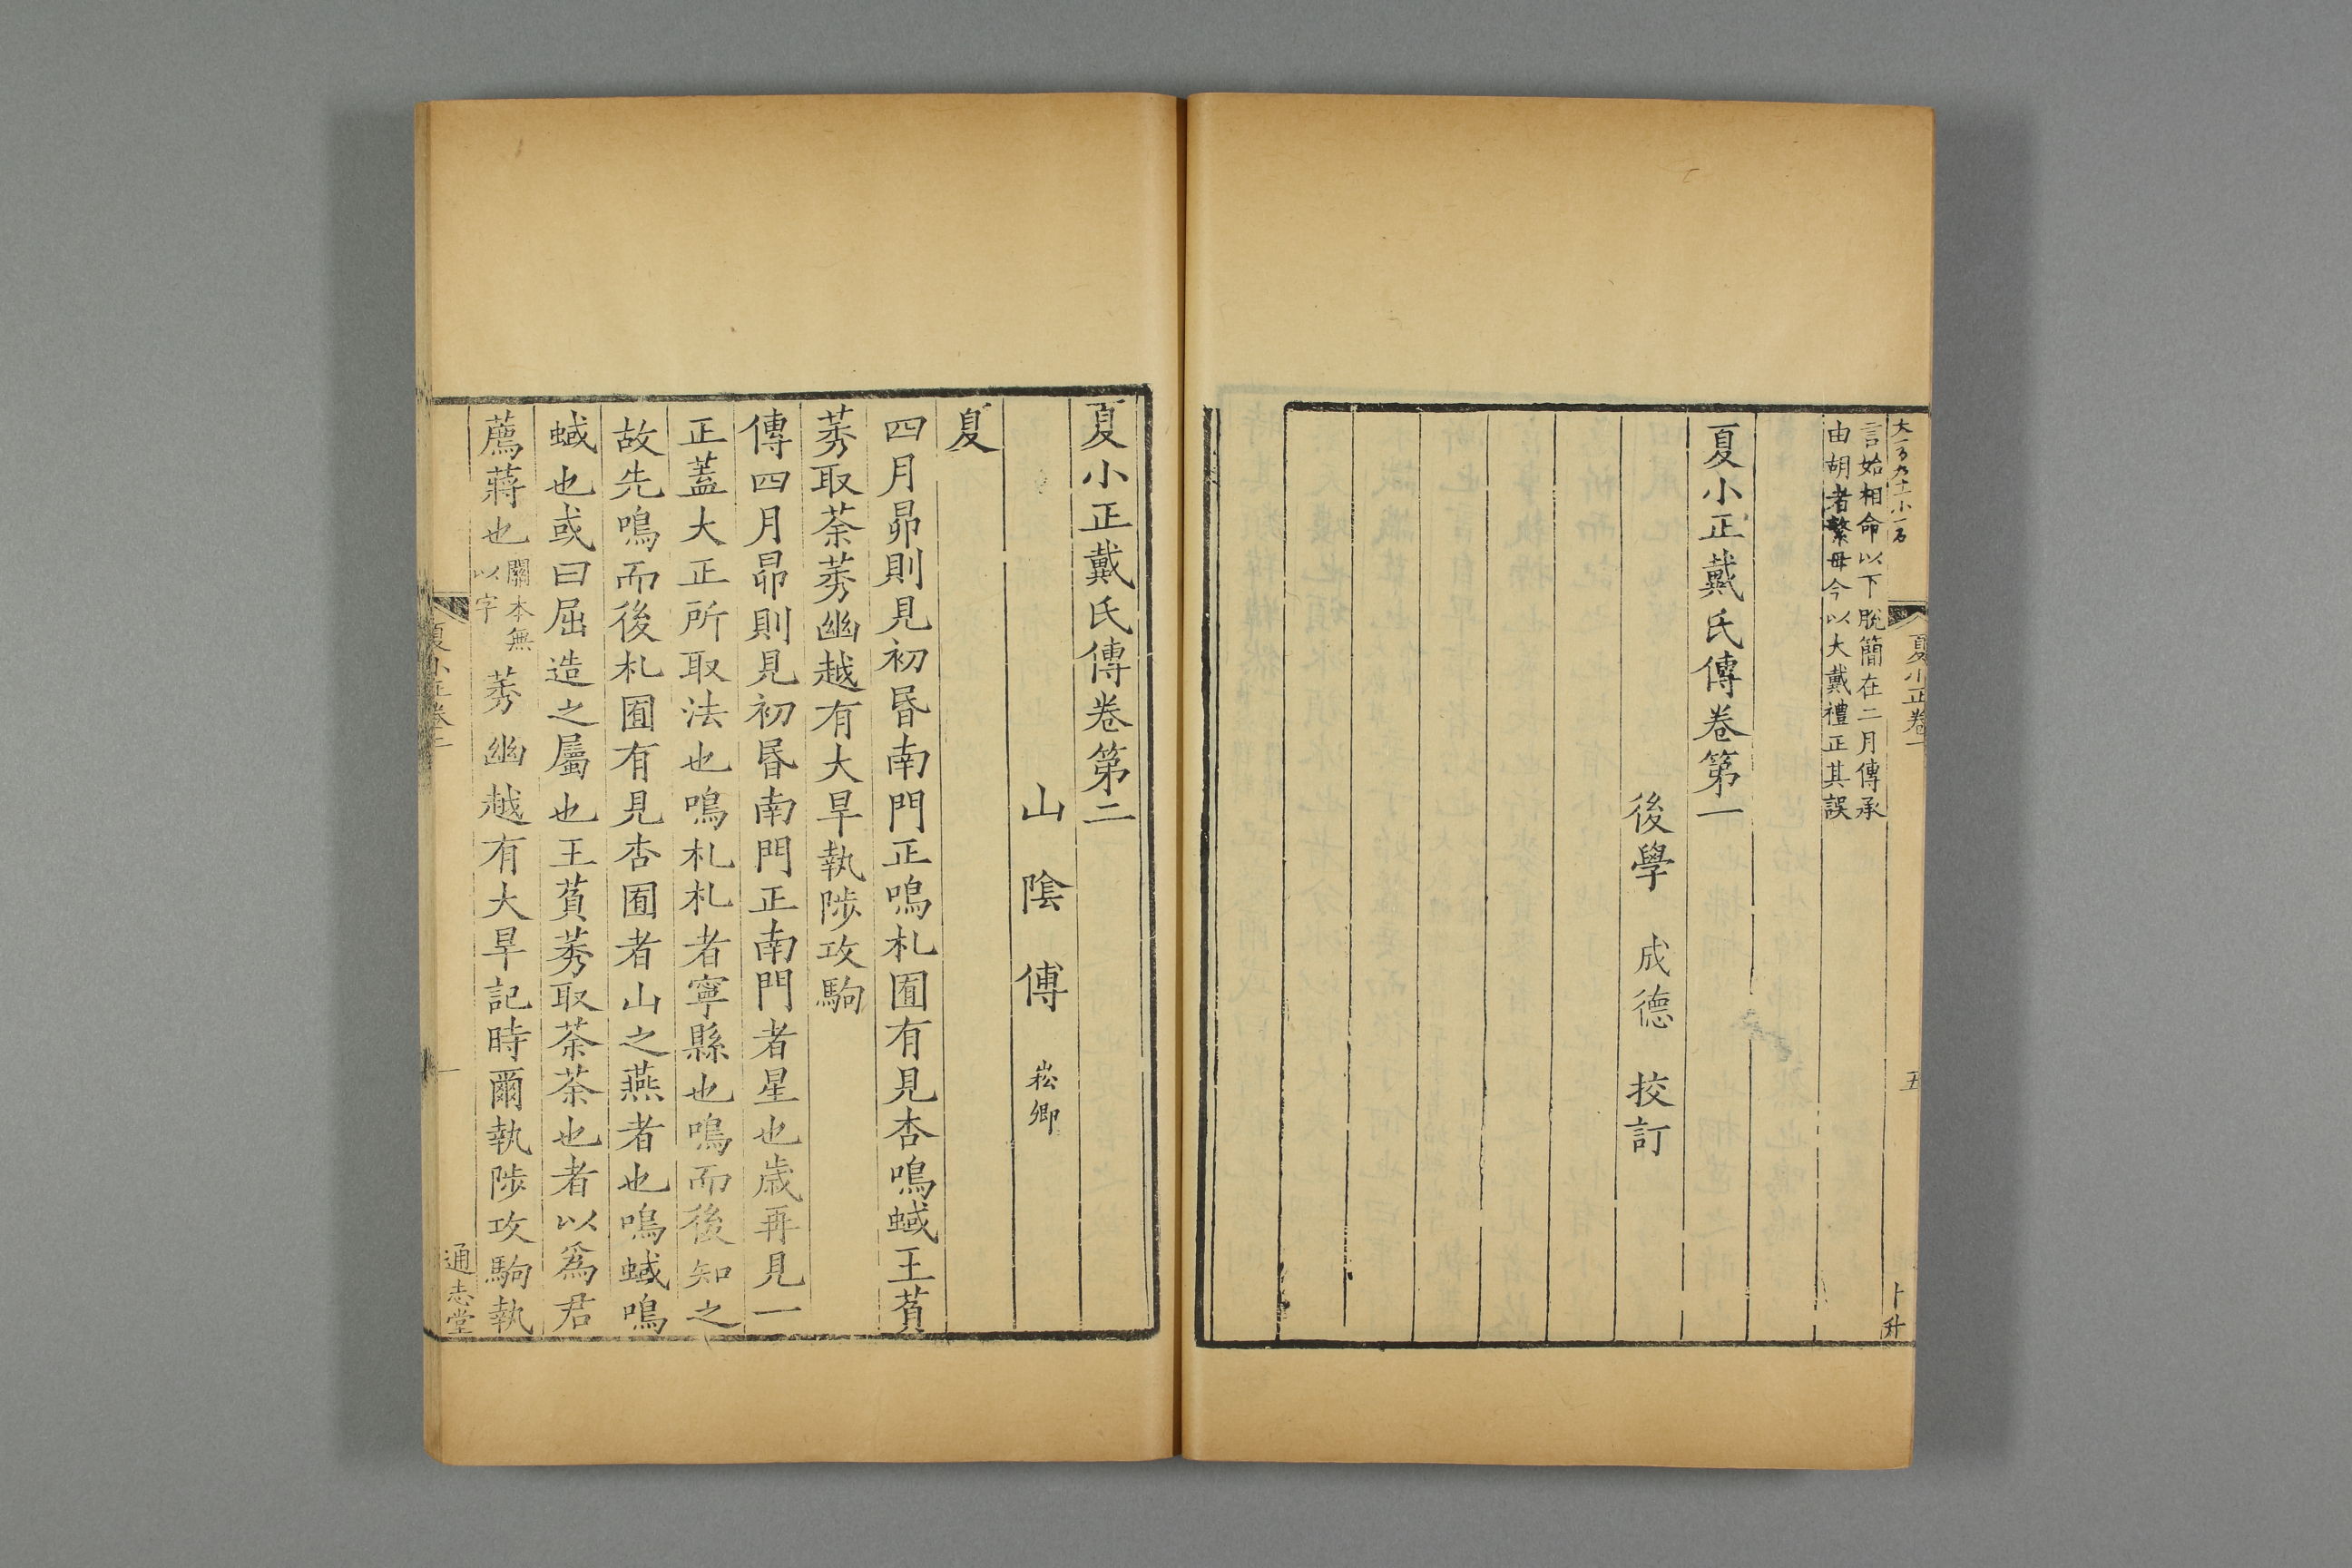 夏小正卷一
五
卜升
言始相命以下脫簡在二月傳承
由胡者繫毋今以大戴禮正其誤
夏小正戴氏傳卷第一
後學 成德 校訂
夏小正戴氏傳卷第二
山陰傅 崧卿
夏
四月昴則見初昏南門正鳴札囿有見杏鳴蜮王萯
莠取荼莠幽越有大旱執陟攻駒
傳四月昴則見初昏南門正南門者星也歲再見一
正蓋大正所取法也鳴札札者寧縣也鳴而後知之
故先鳴而後札囿有見杏囿者山之燕者也鳴蜮鳴
蜮也或曰屈造之屬也王萯莠取荼荼也者以爲君
薦蔣也關本無以字莠幽越有大旱記時爾執陟攻駒執
夏小正卷二
一
通志堂